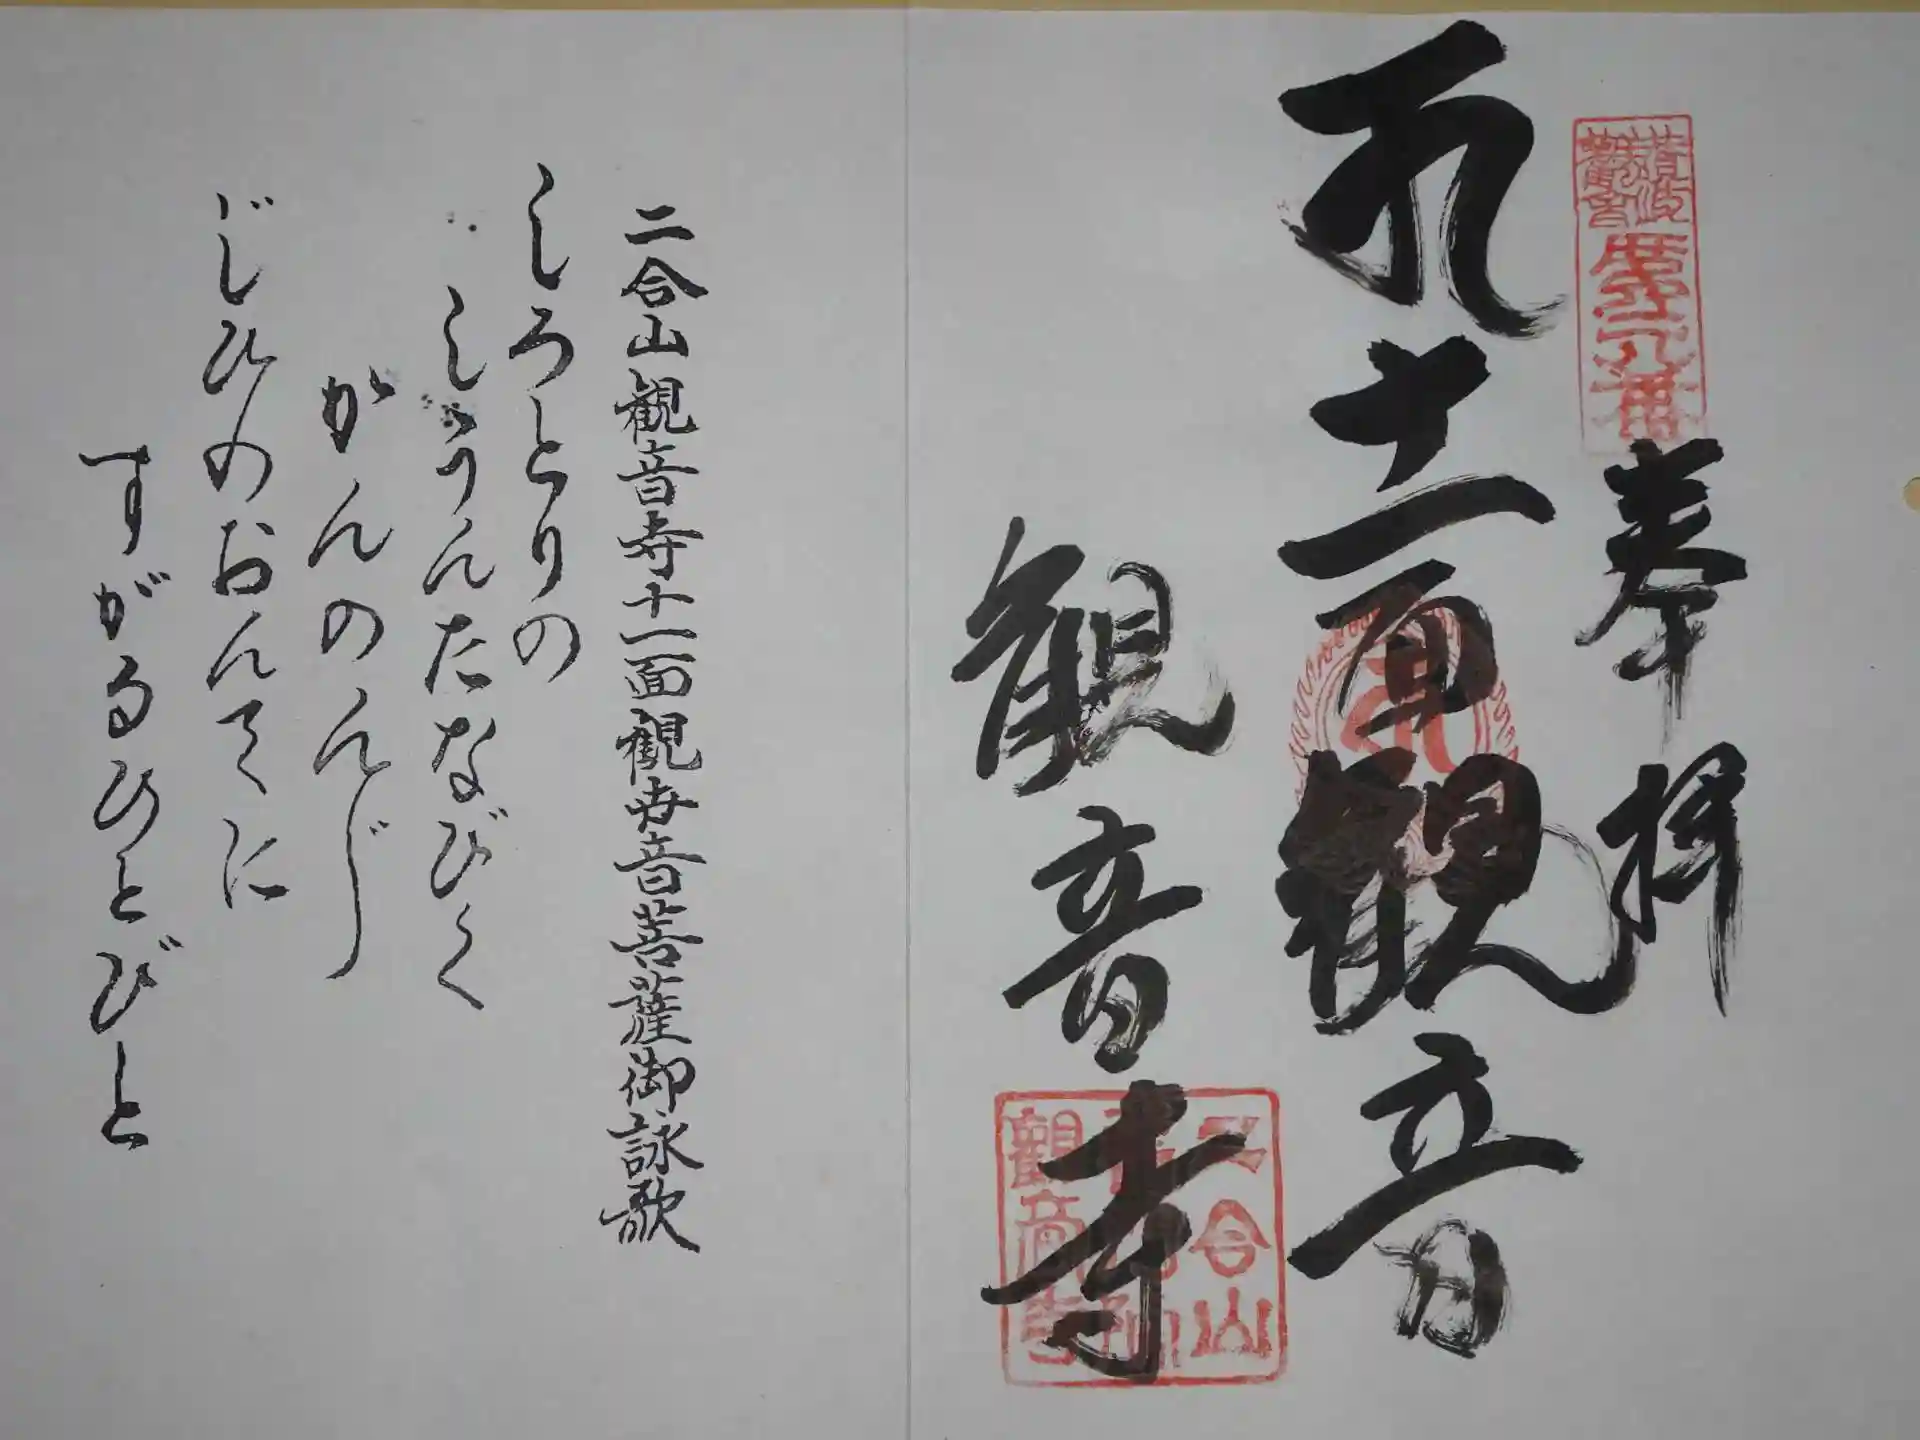 奉拝
十一面観音
観音寺
二合山
観音寺
二合山観音寺十一面観世音菩薩御詠歌
しろとりの
しうんたなびく
かんのんじ
じひのおんてに
すがるひとびと